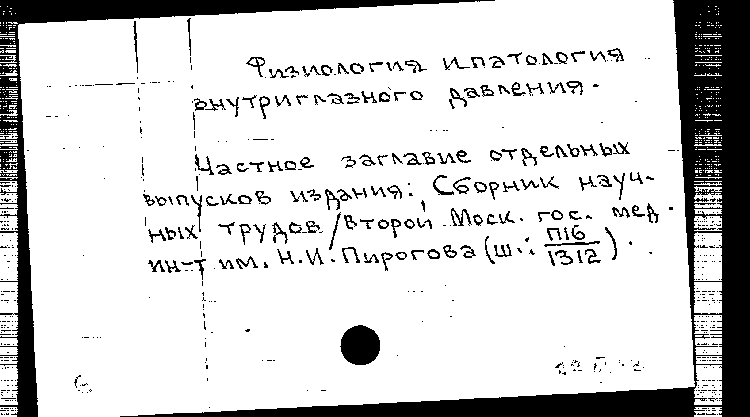 Физиология и патология
внутриглазного давления.
Частное заглавие отдельных
выпусков издания: Сборник науч-
ных трудов / Второй Моск. гос. мед.
ин-т им. Н.И. Пирогова (ш.: П16/1312).